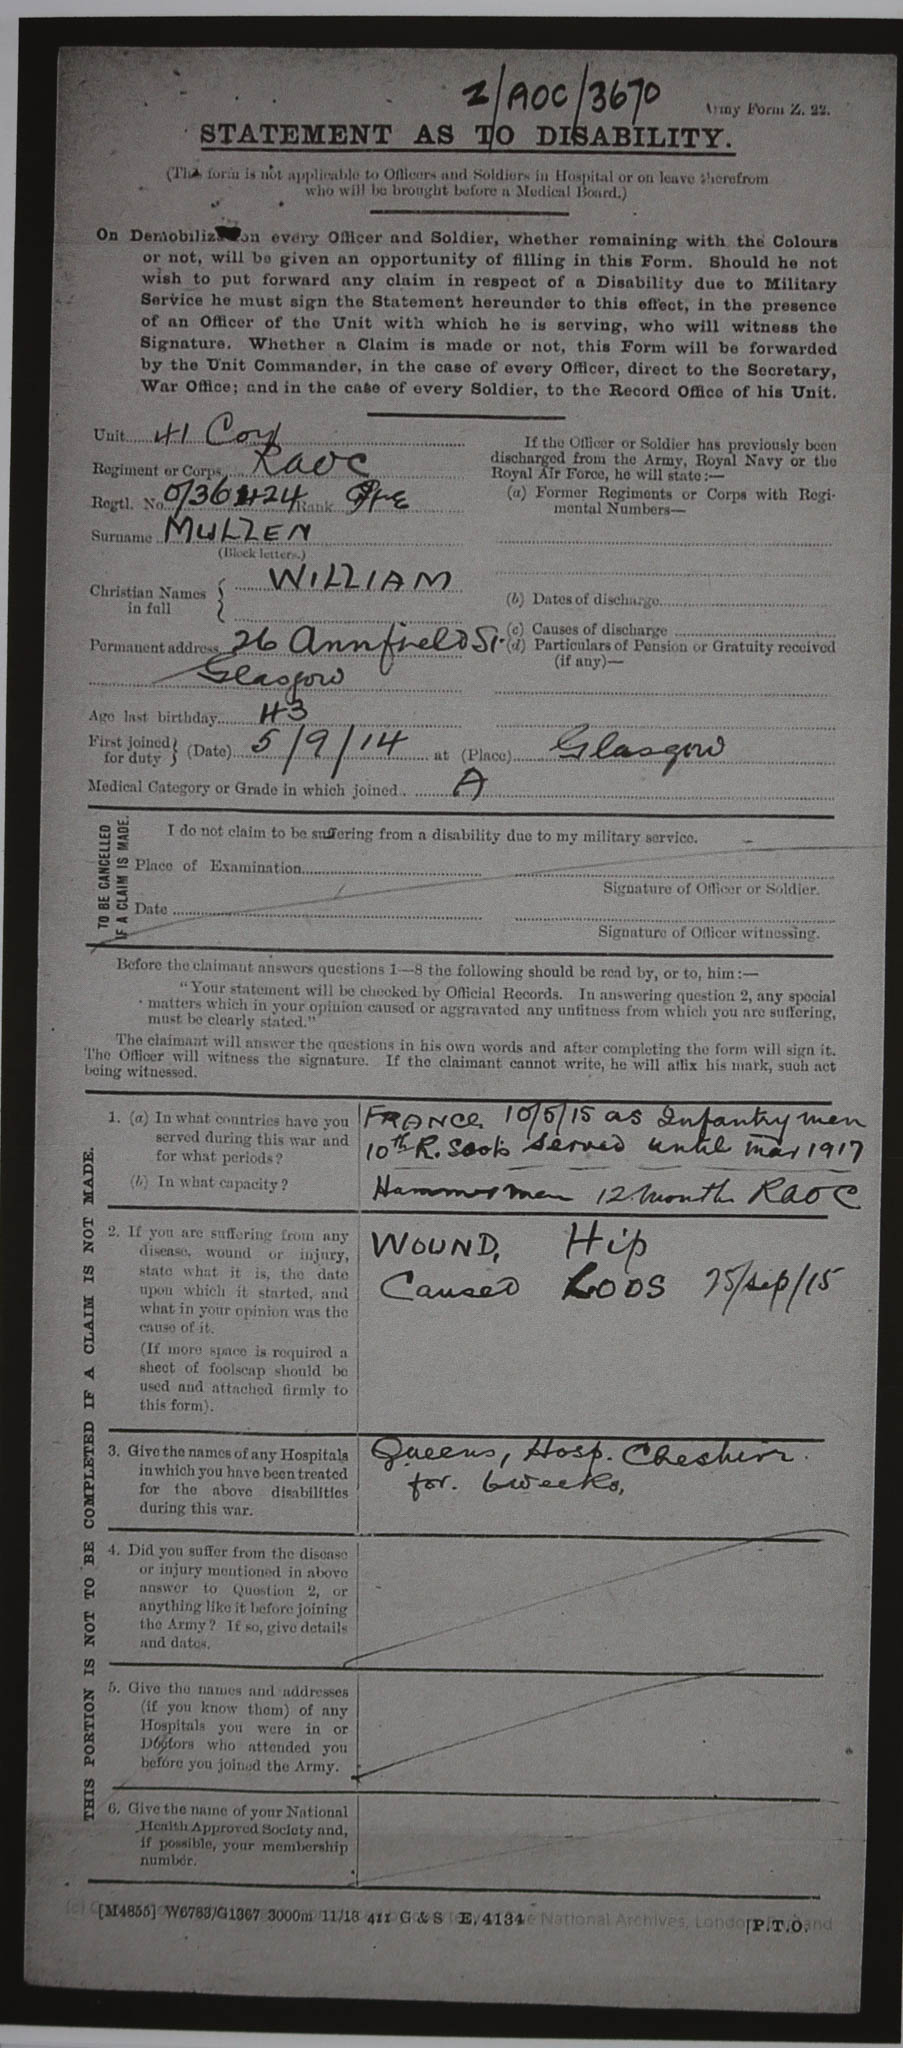 Z/AOC/3670
Army Form Z. 22.
STATEMENT AS TO DISABILITY.
(This form is not applicable to Officers and Soldiers in Hospital or on leave therefrom
who will be brought before a Medical Board.)
On Demobilization every Officer and Soldier, whether remaining with the Colours
or not, will be given an opportunity of filling in this Form. Should he not
wish to put forward any claim in respect of a Disability due to Military
Service he must sign the Statement hereunder to this effect, in the presence
of an Officer of the Unit with which he is serving, who will witness the
Signature. Whether a Claim is made or not, this Form will be forwarded
by the Unit Commander, in the case of every Officer, direct to the Secretary,
War Office; and in the case of every Soldier, to the Record Office of his Unit.
Unit 41 Coy
Regiment or Corps RAOC
Regtl. No. 0/36424 Rank Pte
Surname MULLEN
(Block letters.)
Christian Names in full WILLIAM
Permanent address 26 Annfield St.
Glasgow
Age last birthday 43
If the Officer or Soldier has previously been
discharged from the Army, Royal Navy or the
Royal Air Force, he will state:—
(a) Former Regiments or Corps with Regi-
mental Numbers—
(b) Dates of discharge
(c) Causes of discharge
(d) Particulars of Pension or Gratuity received
(if any)—
First joined for duty } (Date) 5/9/14 at (Place) Glasgow
Medical Category or Grade in which joined A
TO BE CANCELLED
IF A CLAIM IS MADE.
I do not claim to be suffering from a disability due to my military service.
Place of Examination
Signature of Officer or Soldier.
Date
Signature of Officer witnessing.
Before the claimant answers questions 1—8 the following should be read by, or to, him:—
"Your statement will be checked by Official Records. In answering question 2, any special
matters which in your opinion caused or aggravated any unfitness from which you are suffering,
must be clearly stated."
The claimant will answer the questions in his own words and after completing the form will sign it.
The Officer will witness the signature. If the claimant cannot write, he will affix his mark, such act
being witnessed.
THIS PORTION IS NOT TO BE COMPLETED IF A CLAIM IS NOT MADE.
1. (a) In what countries have you
served during this war and
for what periods?
(b) In what capacity?
FRANCE 10/5/15 as Infantrymen
10th R. Scots served until Mar 1917
Hammermen 12 months RAOC
2. If you are suffering from any
disease, wound or injury,
state what it is, the date
upon which it started, and
what in your opinion was the
cause of it.
(If more space is required a
sheet of foolscap should be
used and attached firmly to
this form).
WOUND, Hip
Caused LOOS 25/Sep/15
3. Give the names of any Hospitals
in which you have been treated
for the above disabilities
during this war.
Queens, Hosp. Cheshire.
for. 6 weeks,
4. Did you suffer from the disease
or injury mentioned in above
answer to Question 2, or
anything like it before joining
the Army? If so, give details
and dates.
5. Give the names and addresses
(if you know them) of any
Hospitals you were in or
Doctors who attended you
before you joined the Army.
6. Give the name of your National
Health Approved Society and,
if possible, your membership
number.
[M4855] W6783/G1367 3000m 11/18 411 G & S E. 4134
National Archives, London, England
[P.T.O.